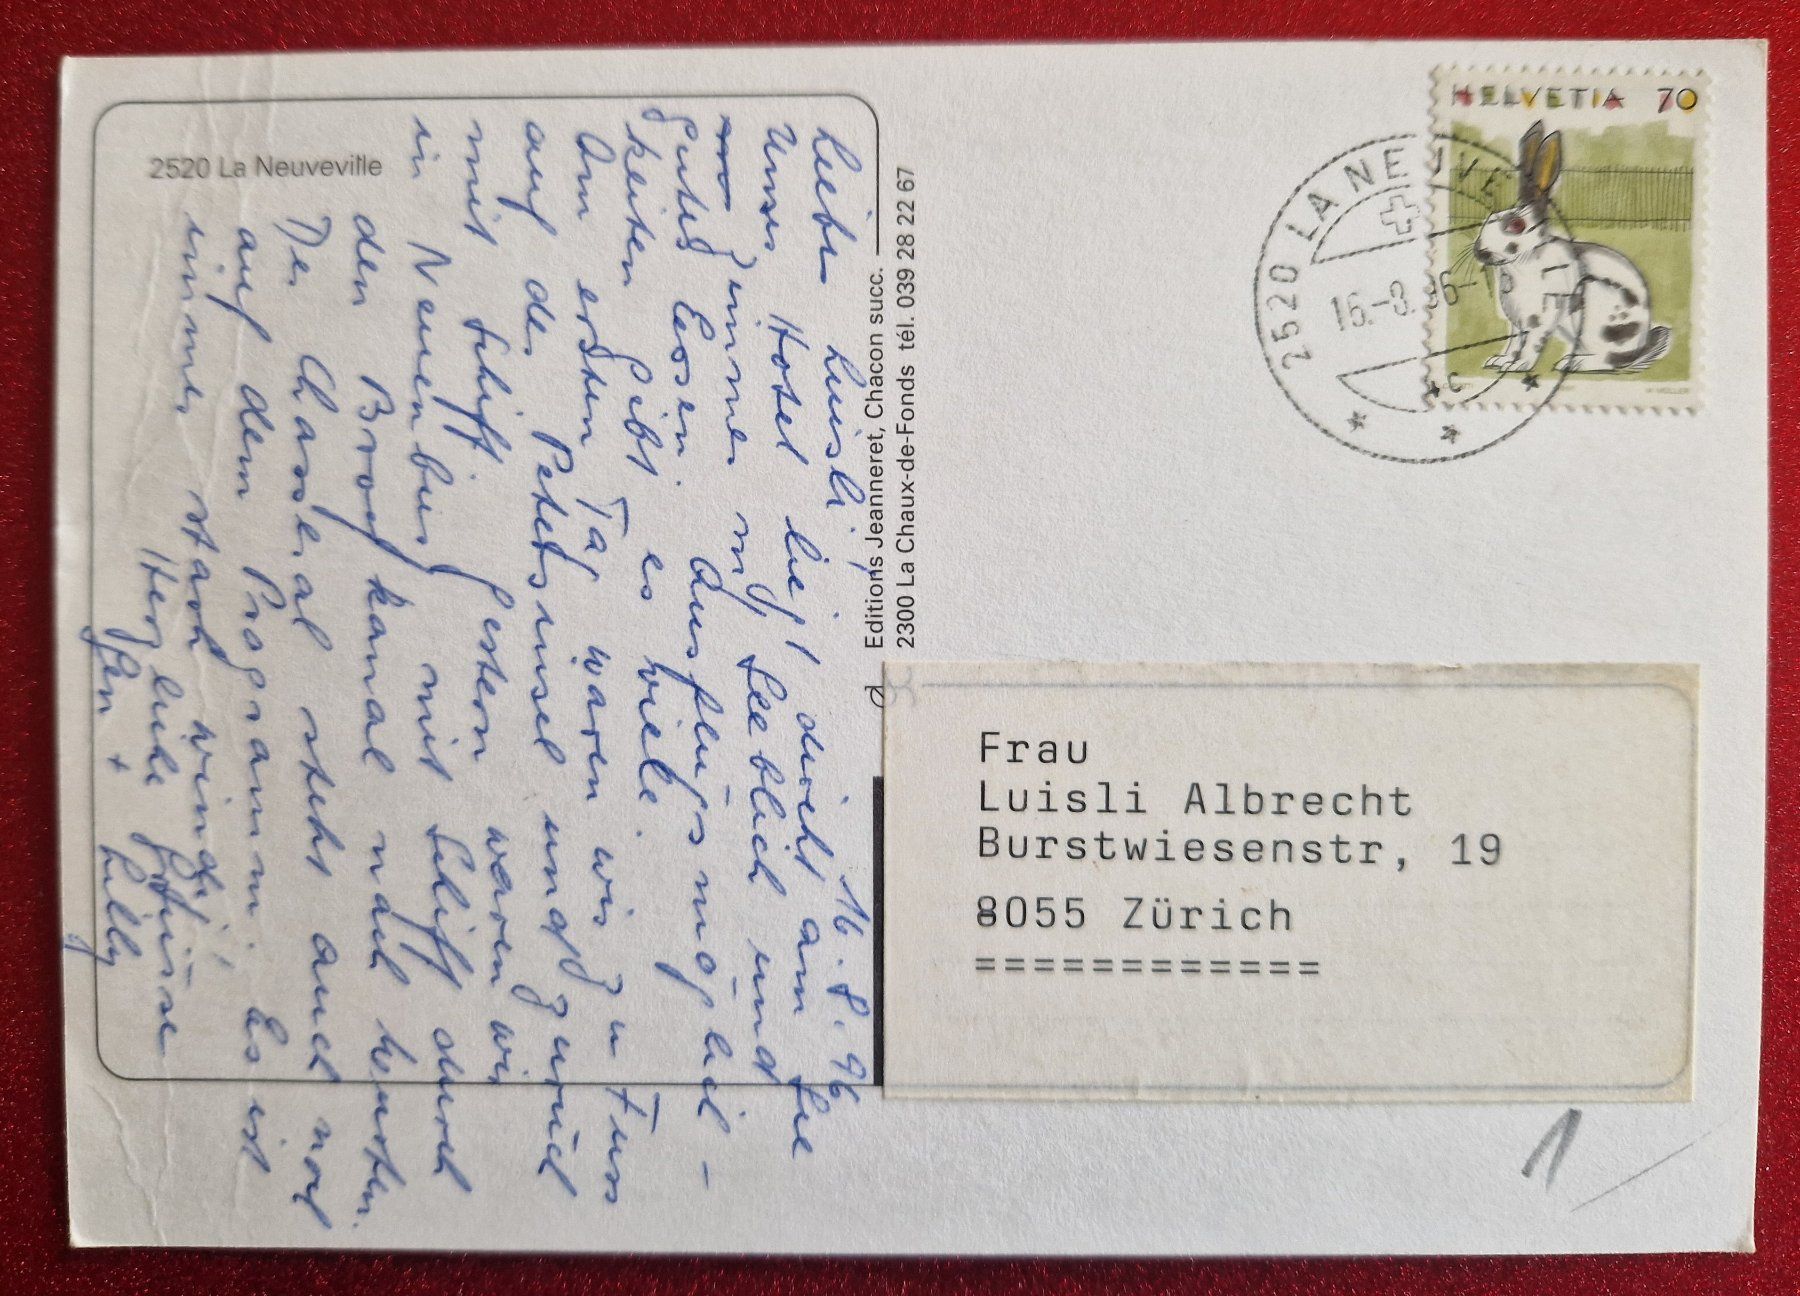 2520 La Neuveville
16.8.96
Liebes Luisli!
Unser Hotel liegt direkt am See
Zimmer mit Seeblick und
gutes Essen. Ausflugsmöglich-
keiten gibt es viele.
Am ersten Tag waren wir zu Fuss
auf der Petersinsel und zurück
mit Schiff. Gestern waren wir
in Neuenburg mit Schiff durch
den Broyekanal nach Murten.
Der Chasseral steht auch noch
auf dem Programm. Es ist
immer stark windig!
Herzliche Grüsse
+ Lilly
Editions Jeanneret, Chacon succ.
2300 La Chaux-de-Fonds tél. 039 28 22 67
HELVETIA 70
2520 LA NEUVEVILLE
Frau
Luisli Albrecht
Burstwiesenstr, 19
8055 Zürich
============
1